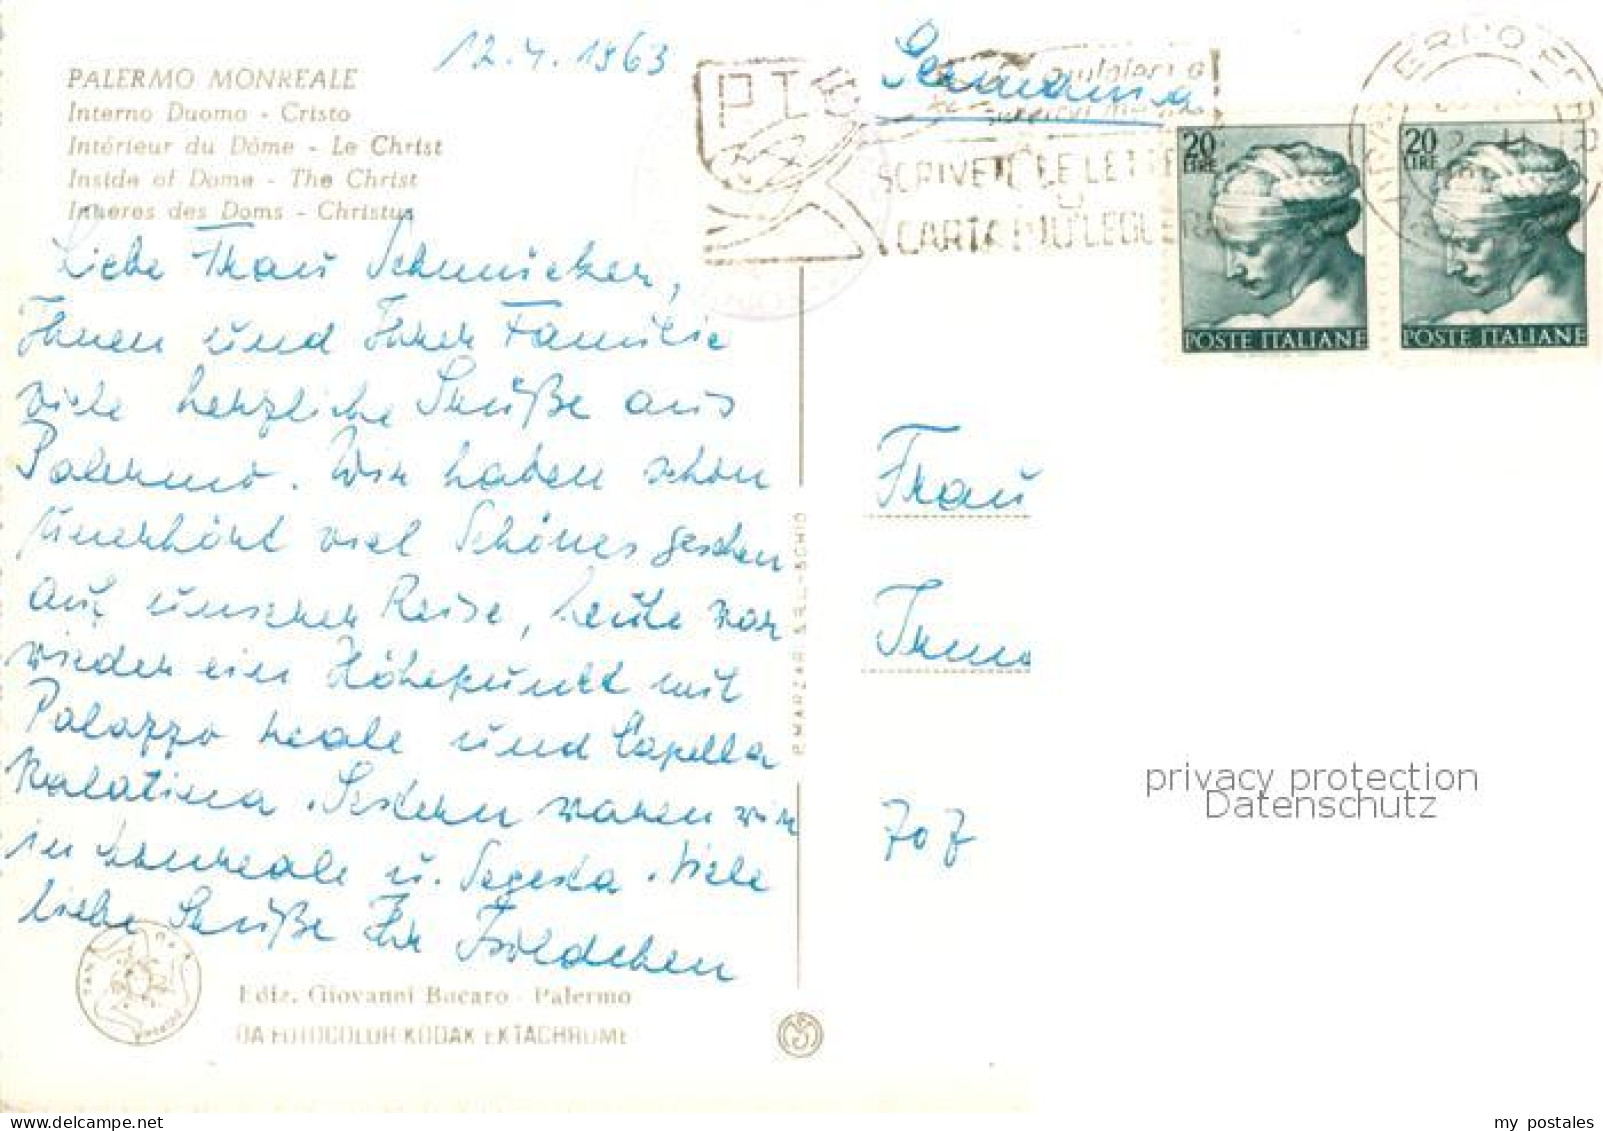 12.4.1963
PALERMO MONREALE
Interno Duomo - Cristo
Intérieur du Dôme - Le Christ
Inside of Dome - The Christ
Inneres des Doms - Christus
Liebe Frau Schmicker,
Ihnen und Ihrer Familie
viele herzliche Grüße aus
Palermo. Wir haben schon
unerhört viel Schönes gesehen
auf unserer Reise, heute war
wieder ein Höhepunkt mit
Palazzo reale und Capella
Palatina. Gestern waren wir
in Monreale u. Segesta. Viele
liebe Grüße Ihr
Ediz. Giovanni Bucaro - Palermo
DA FOTOCOLOR KODAK EKTACHROME
PT
SCRIVETE LE LETTE
CARTA PIU LEGGERA
Germania
20
LIRE
POSTE ITALIANE
20
LIRE
POSTE ITALIANE
Frau
707
privacy protection
Datenschutz
my postales